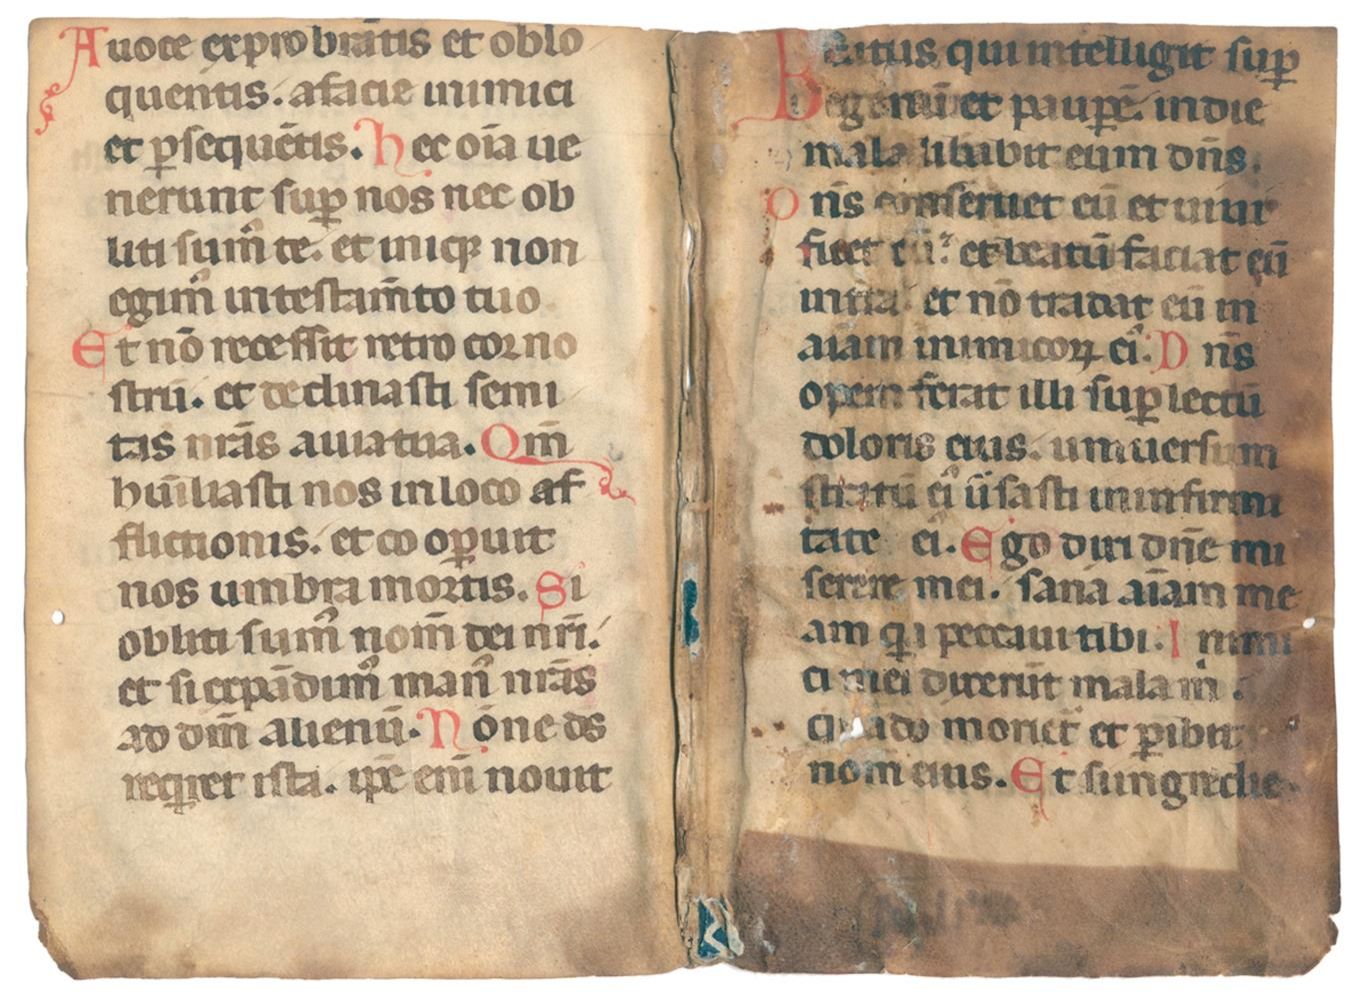 A uoce exprobrātis et oblo
quentis. afacie inimici
et ꝑsequētis. hec oīa ue
nerunt suꝑ nos nec ob
liti sumꝰ te. et iniq̨ non
egimꝰ in testam̄to tuo
Et nō recessit retro cor no
strū. et declinasti semi
tas nr̄as a uia tua. Qm̄
hūiliasti nos in loco af
flictionis. et co oꝑuit
nos umbra mortis. Si
obliti sumꝰ nom̄ dei nrī.
et si expādimꝰ manꝰ nr̄as
ad dm̄ alienū. Nōne ds
reqͥret ista. ip̄e em̄ nouit
Beatus qui intelligit suꝑ
egenū et pauꝑē. in die
mala libabit eum dn̄s.
Dn̄s conseruet eū et uiui
ficet eū. et beatū faciat eū
in tra et nō tradat eū in
aīam inimicoꝝ eiꝰ. Dn̄s
opem ferat illi suꝑ lectū
doloris eius. uniuersum
stratū eiꝰ ūsasti in infirmi
tate eiꝰ. Ego dixi dn̄e mi
serere mei. sana aīam me
am qͥa peccaui tibi. Inimi
ci mei dixerūt mala m̄.
qͣndo moriet᷑ et ꝑibit
nom̄ eius. Et si ingredie